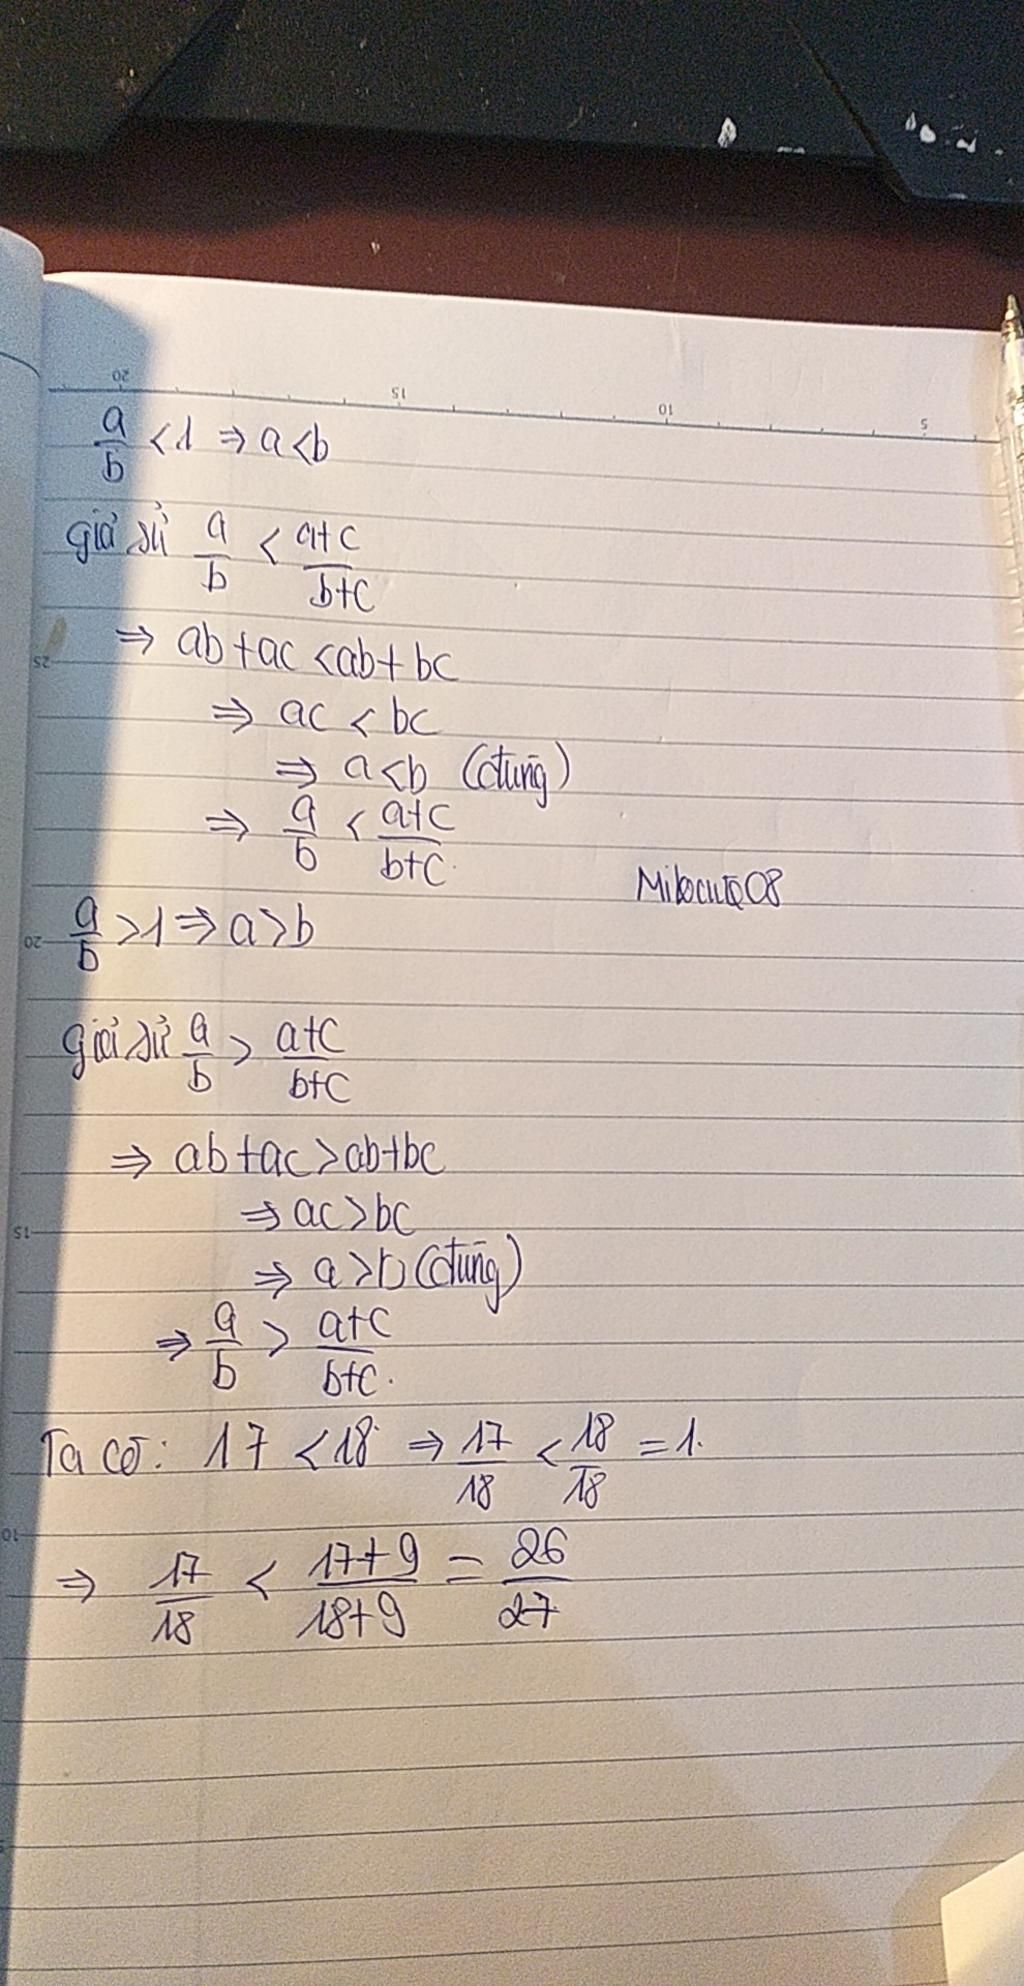 20 15 10 5
a/b < 1 ⇒ a < b
giả sử a/b < a+c/b+c
⇒ ab + ac < ab + bc
25
⇒ ac < bc
⇒ a < b (đúng)
⇒ a/b < a+c/b+c.
a/b > 1 ⇒ a > b
20
giả sử a/b > a+c/b+c
⇒ ab + ac > ab + bc
⇒ ac > bc
15
⇒ a > b (đúng)
⇒ a/b > a+c/b+c.
Ta có: 17 < 18 ⇒ 17/18 < 18/18 = 1.
10
⇒ 17/18 < 17+9/18+9 = 26/27